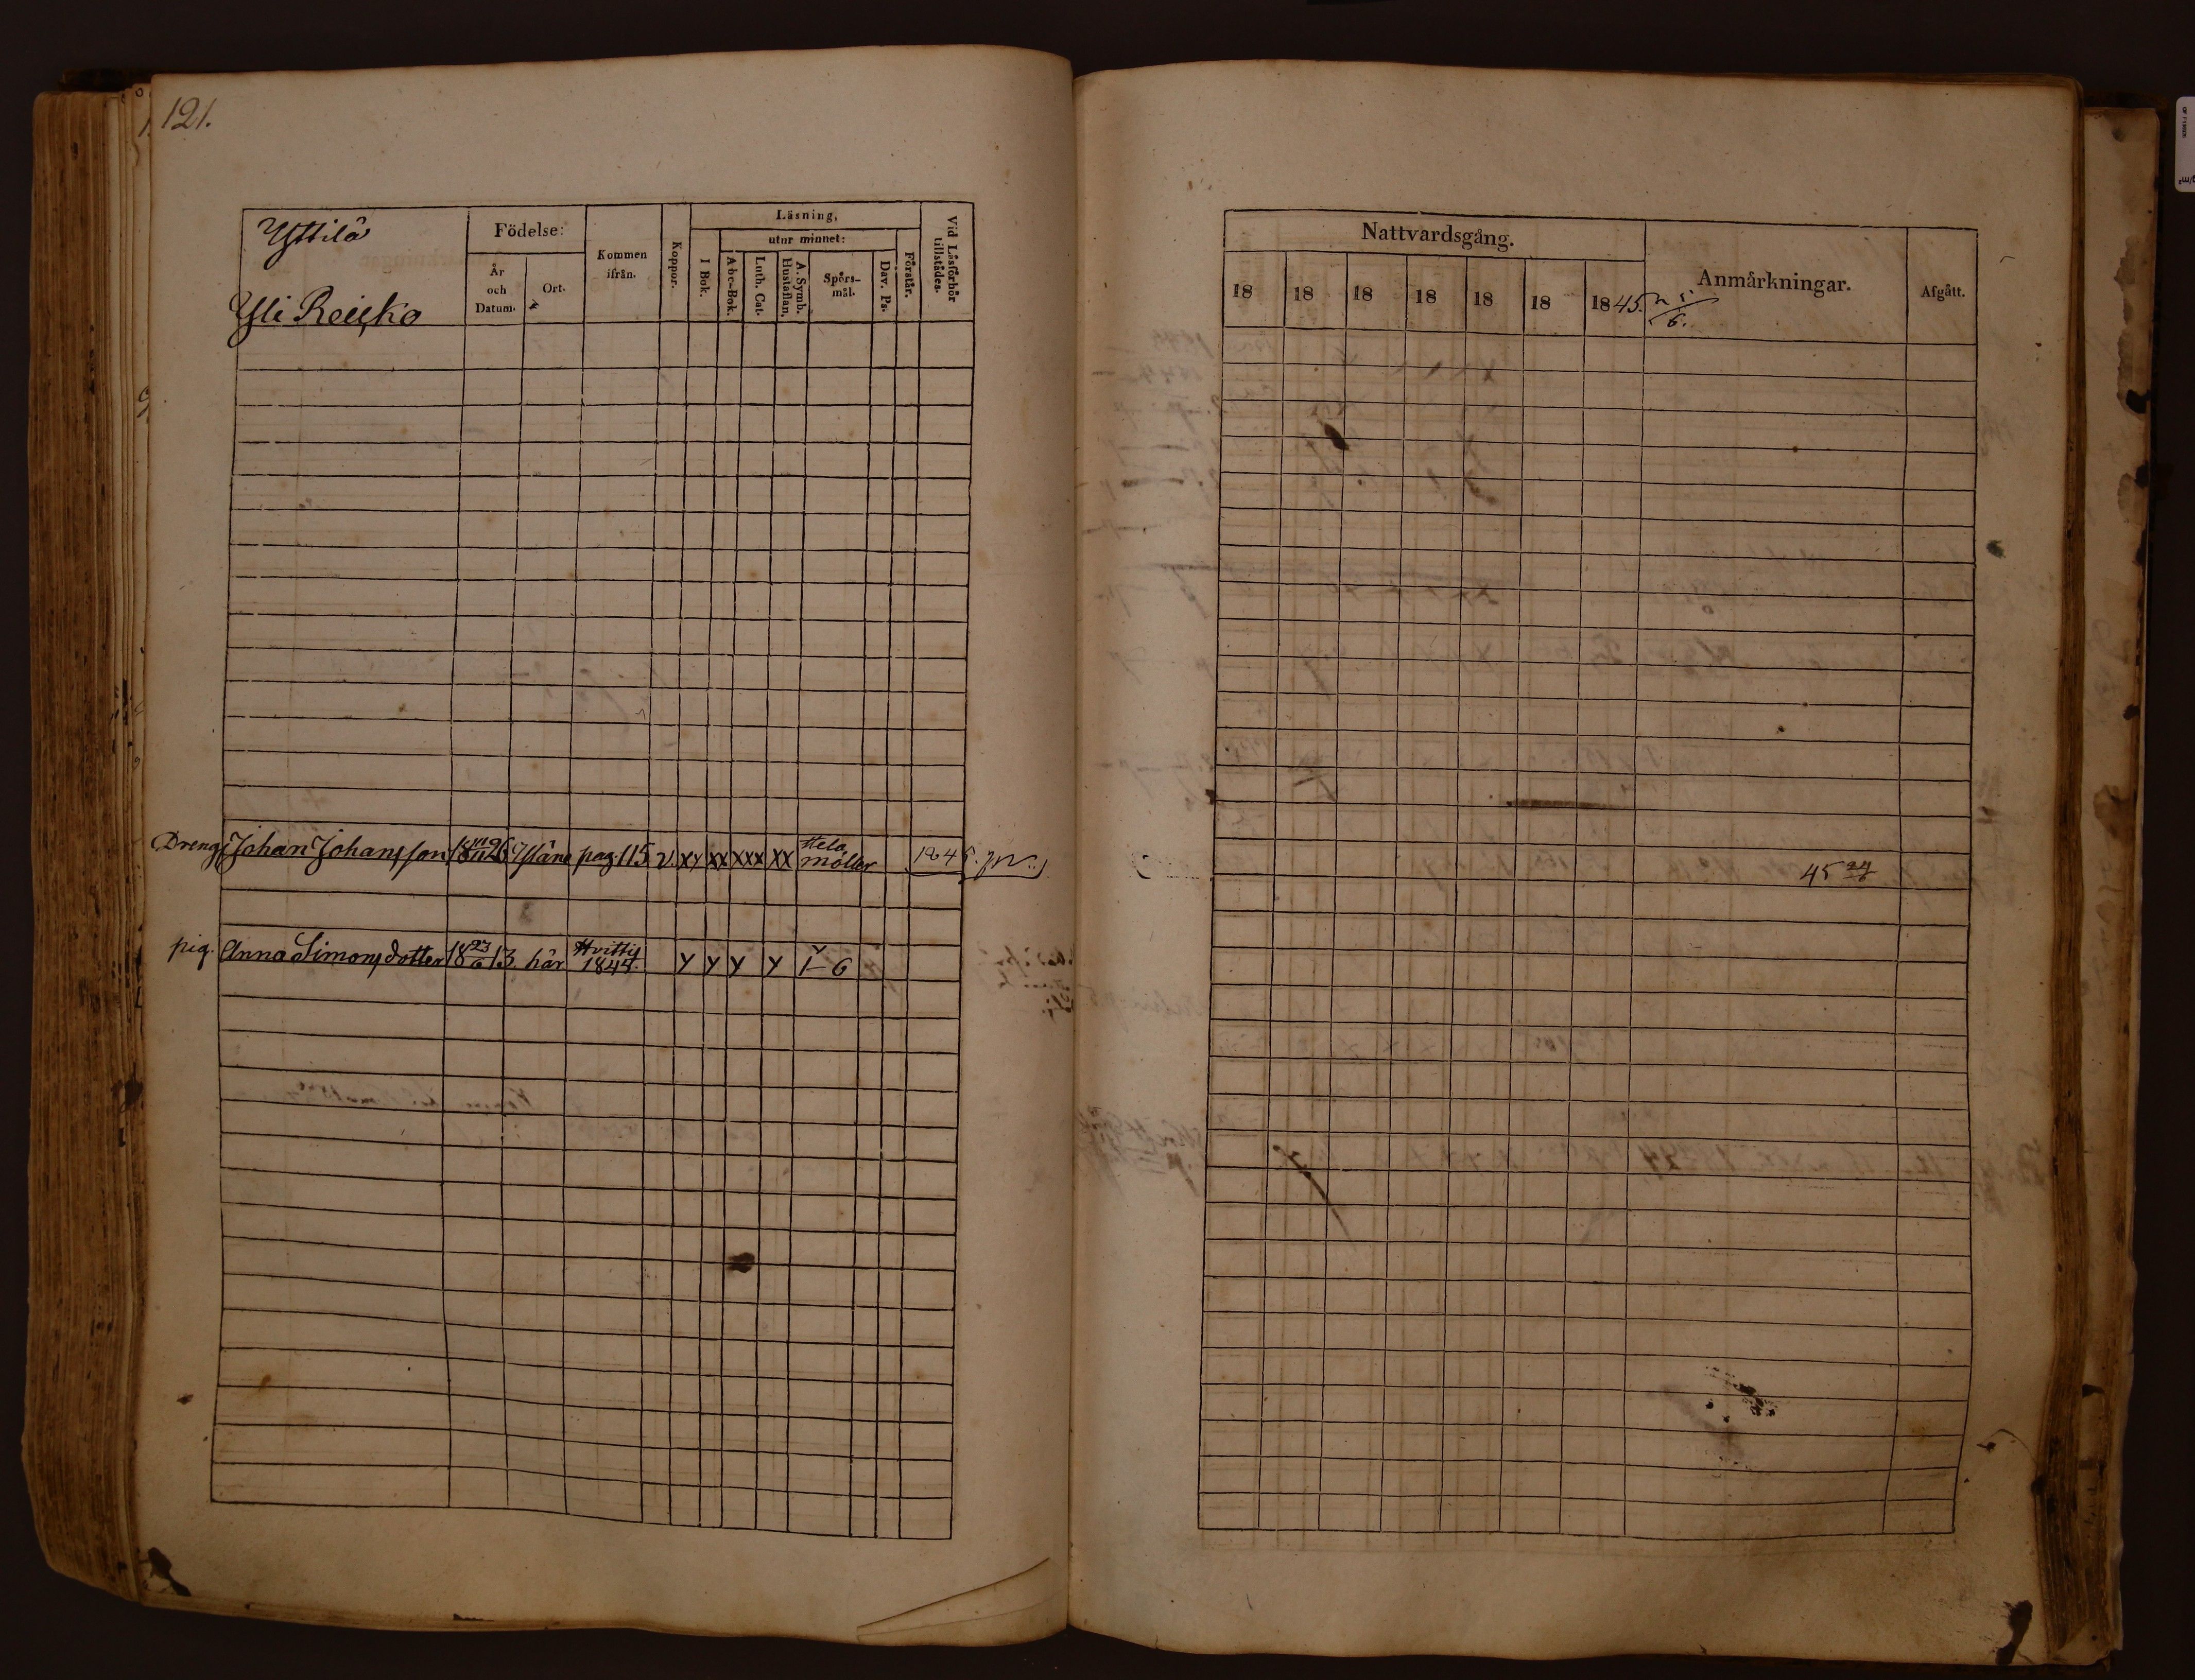 121.
Yttilä
Yli Reicko
Födelse:
År
och
Datum.
Ort.
Kommen
ifrån.
Koppor.
Läsning,
I Bok.
utur minnet:
Abc-Bok.
Luth. Cat.
A. Symb.
Hustaflan,
Spörs-
mål.
Dav. Ps.
Förstår.
Vid Läsförhör
tillstädes.
Nattvardsgång.
18 18 18 18 18 18 1845.
Anmärkningar.
Afgått.
Dreng Johan Johansson 18 26 Yläne pag 115 v. xx xx xxx xx Hela
möller 1845.
45 24/6
pig. Anna Simonsdotter 18 23/6 13 här Hvittis
1844. y y y y 1–6